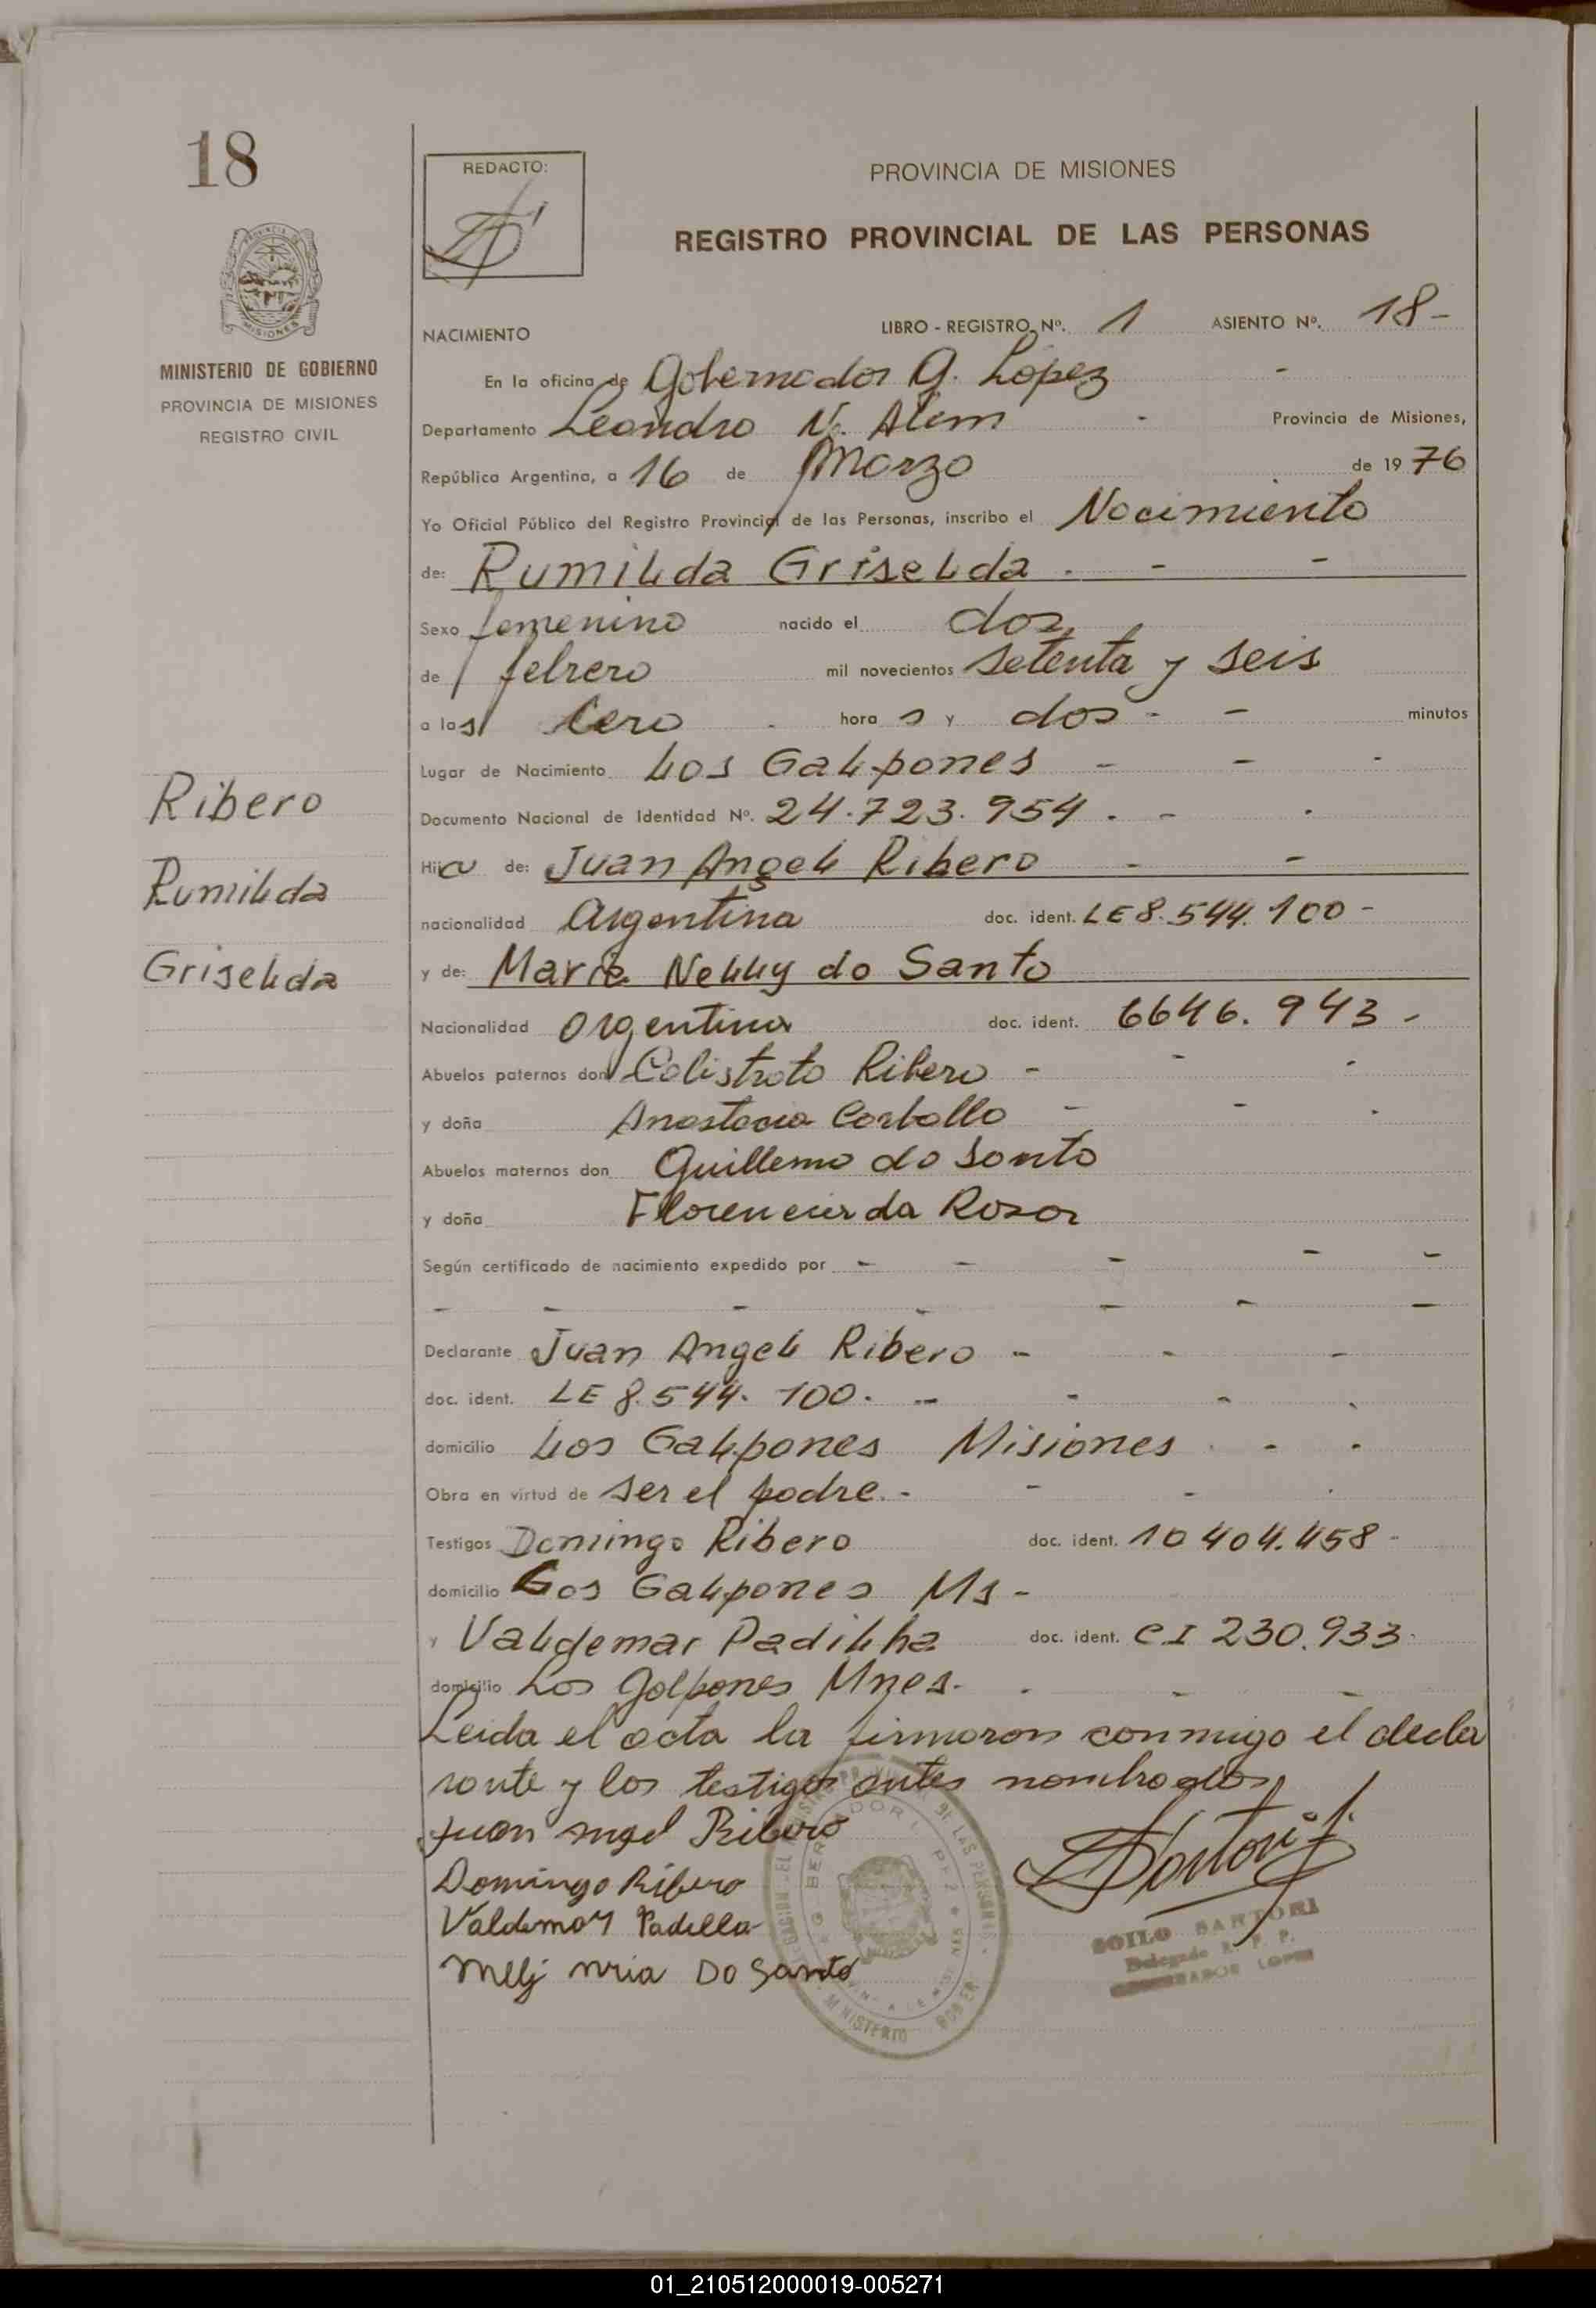 18
REDACTO:
PROVINCIA DE MISIONES
REGISTRO PROVINCIAL DE LAS PERSONAS
MISIONES
MINISTERIO DE GOBIERNO
PROVINCIA DE MISIONES
REGISTRO CIVIL
NACIMIENTO LIBRO - REGISTRO Nº. 1 ASIENTO Nº. 18-
En la oficina de Gobernador G. López -
Departamento Leandro N. Alem - Provincia de Misiones,
República Argentina, a 16 de Marzo de 1976
Yo Oficial Público del Registro Provincial de las Personas, inscribo el Nacimiento
de: Rumilda Griselda . - -
Sexo femenino nacido el dos
de febrero mil novecientos setenta y seis
a las Cero - hora s y dos - - minutos
Lugar de Nacimiento Los Galpones - - -
Documento Nacional de Identidad Nº. 24.723.954 . - .
Hija de: Juan Angel Ribero - -
nacionalidad Argentina doc. ident. LE 8.544.100 -
y de: Maria Nelly do Santo
Nacionalidad argentina doc. ident. 6646.943 -
Abuelos paternos don Calistrato Ribero - - -
y doña Anastacia Carballo - - -
Abuelos maternos don Guillermo do Santo
y doña Florencia da Rosa
Según certificado de nacimiento expedido por - - - - -
- - - - - - -
Declarante Juan Angel Ribero - - -
doc. ident. LE 8.544.100. - - - -
domicilio Los Galpones Misiones . - -
Obra en virtud de ser el padre. - - - .
Testigos Domingo Ribero doc. ident. 10 404.458 -
domicilio Los Galpones Ms -
y Valdemar Padilha doc. ident. C.I 230.933.
domicilio Los Galpones Mnes. . - -
Leida el acta la firmaron conmigo el decla
rante y los testigos antes nombrados
Juan Angel Ribero
Domingo Ribero
Valdemar Padilla
Melj mria Do Santo
Ribero
Rumilda
Griselda
SOILO SARTORI
Delegado R. P. P.
GOBERNADOR LOPEZ
01_210512000019-005271